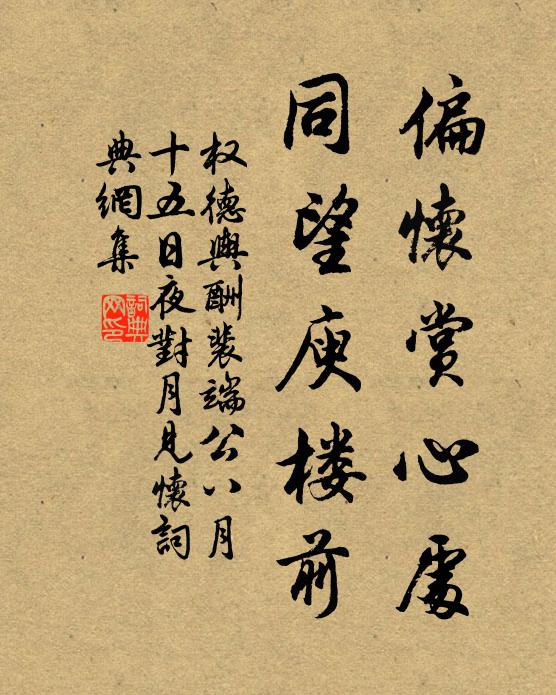 偏懷賞心處
同望庾楼前
权德輿酬裴端公八月
十五日夜對月見懷詞
典網集
詞典网印